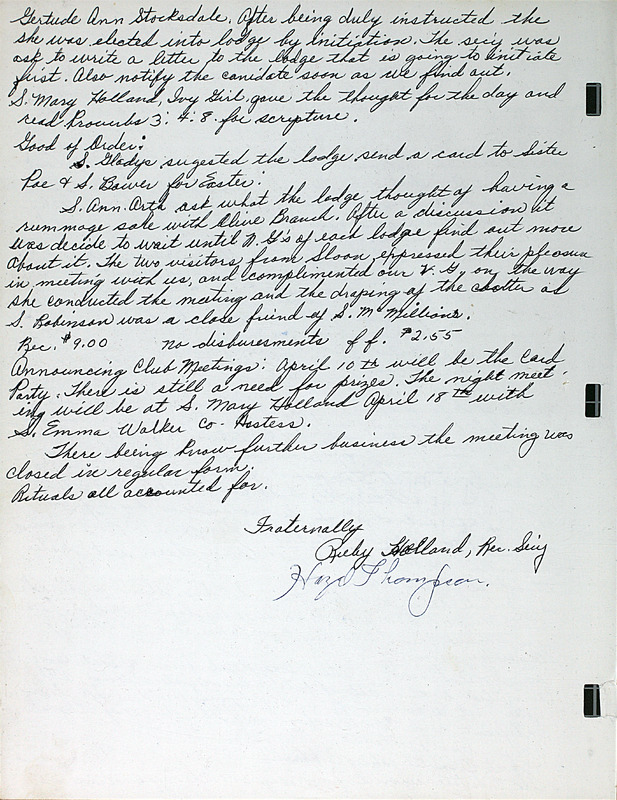 Gertude Ann Stocksdale. After being duly instructed the
she was elected into lodge by initiation. The sec'y was
ask to write a letter to the lodge that is going to initiate
first. Also notify the canidate soon as we find out.
S. Mary Holland, Ivy Girl, gave the thought for the day and
read Proverbs 3: 4: 8 for scripture.
Good of Order:
S. Gladys sugested the lodge send a card to Sister
Poe & S. Bower for Easter.
S. Ann Arth ask what the lodge thought of having a
rummage sale with Olive Branch. After a discussion it
was decide to wait until N. G's of each lodge find out more
about it. The two visitors, from Sloan expressed their pleasure
in meeting with us, and complimented our V. G, on the way
she conducted the meeting and the draping of the as
S. Robinson was a close friend of S. McMillians.
Rec. $9.00 no disbursments f f. $2.55
Announcing Club Meetings: April 10th will be the Card
Party. There is still a need for prizes. The night meet-
ing will be at S. Mary Holland April 18th with
S. Emma Walker Co-Hostess.
There being know further business the meeting was
closed in regular form.
Rituals all accounted for.
Fraternally
Ruby Holland, Rec. Sec'y
Thompson.